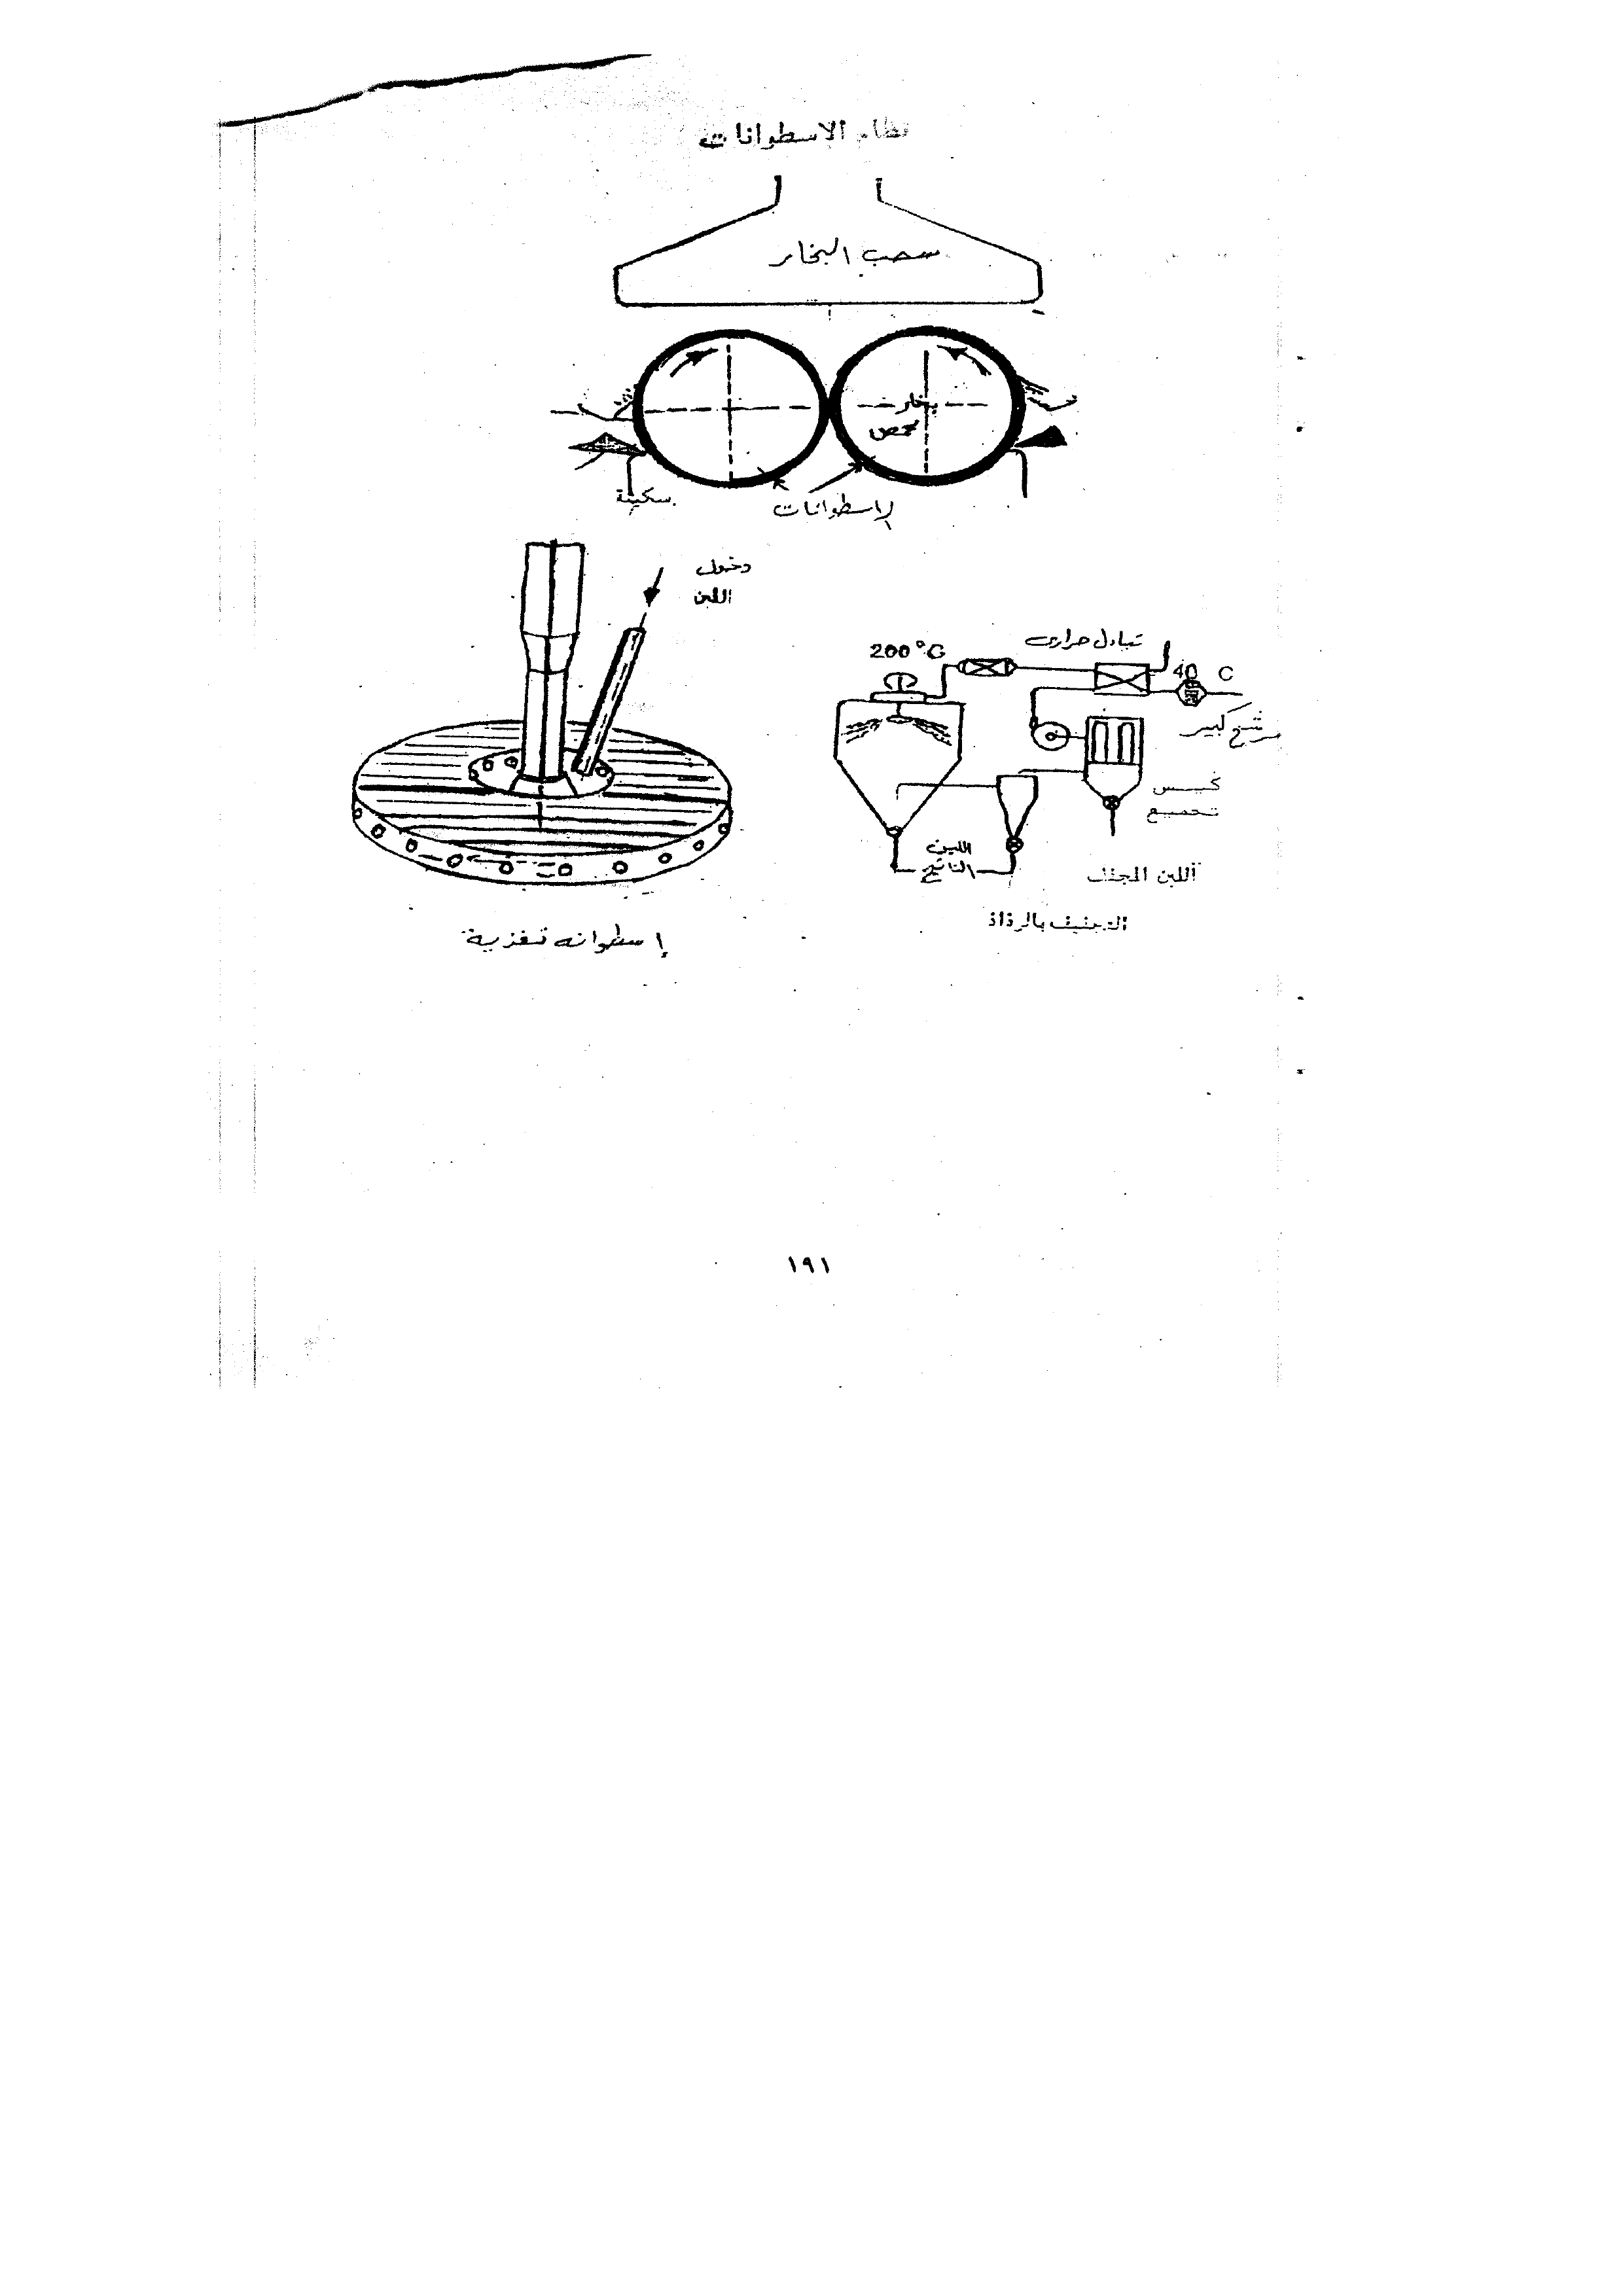 نظام الاسطوانات
سحب البخار
بخار
محمص
سكينة
الاسطوانات
دخول
اللبن
200°C
تبادل حرارى
40 C
مرشح كبير
كيس
تجميع
اللبن
الناتج
اللبن المجفف
التجفيف بالرذاذ
إسطوانه تغذية
١٩١